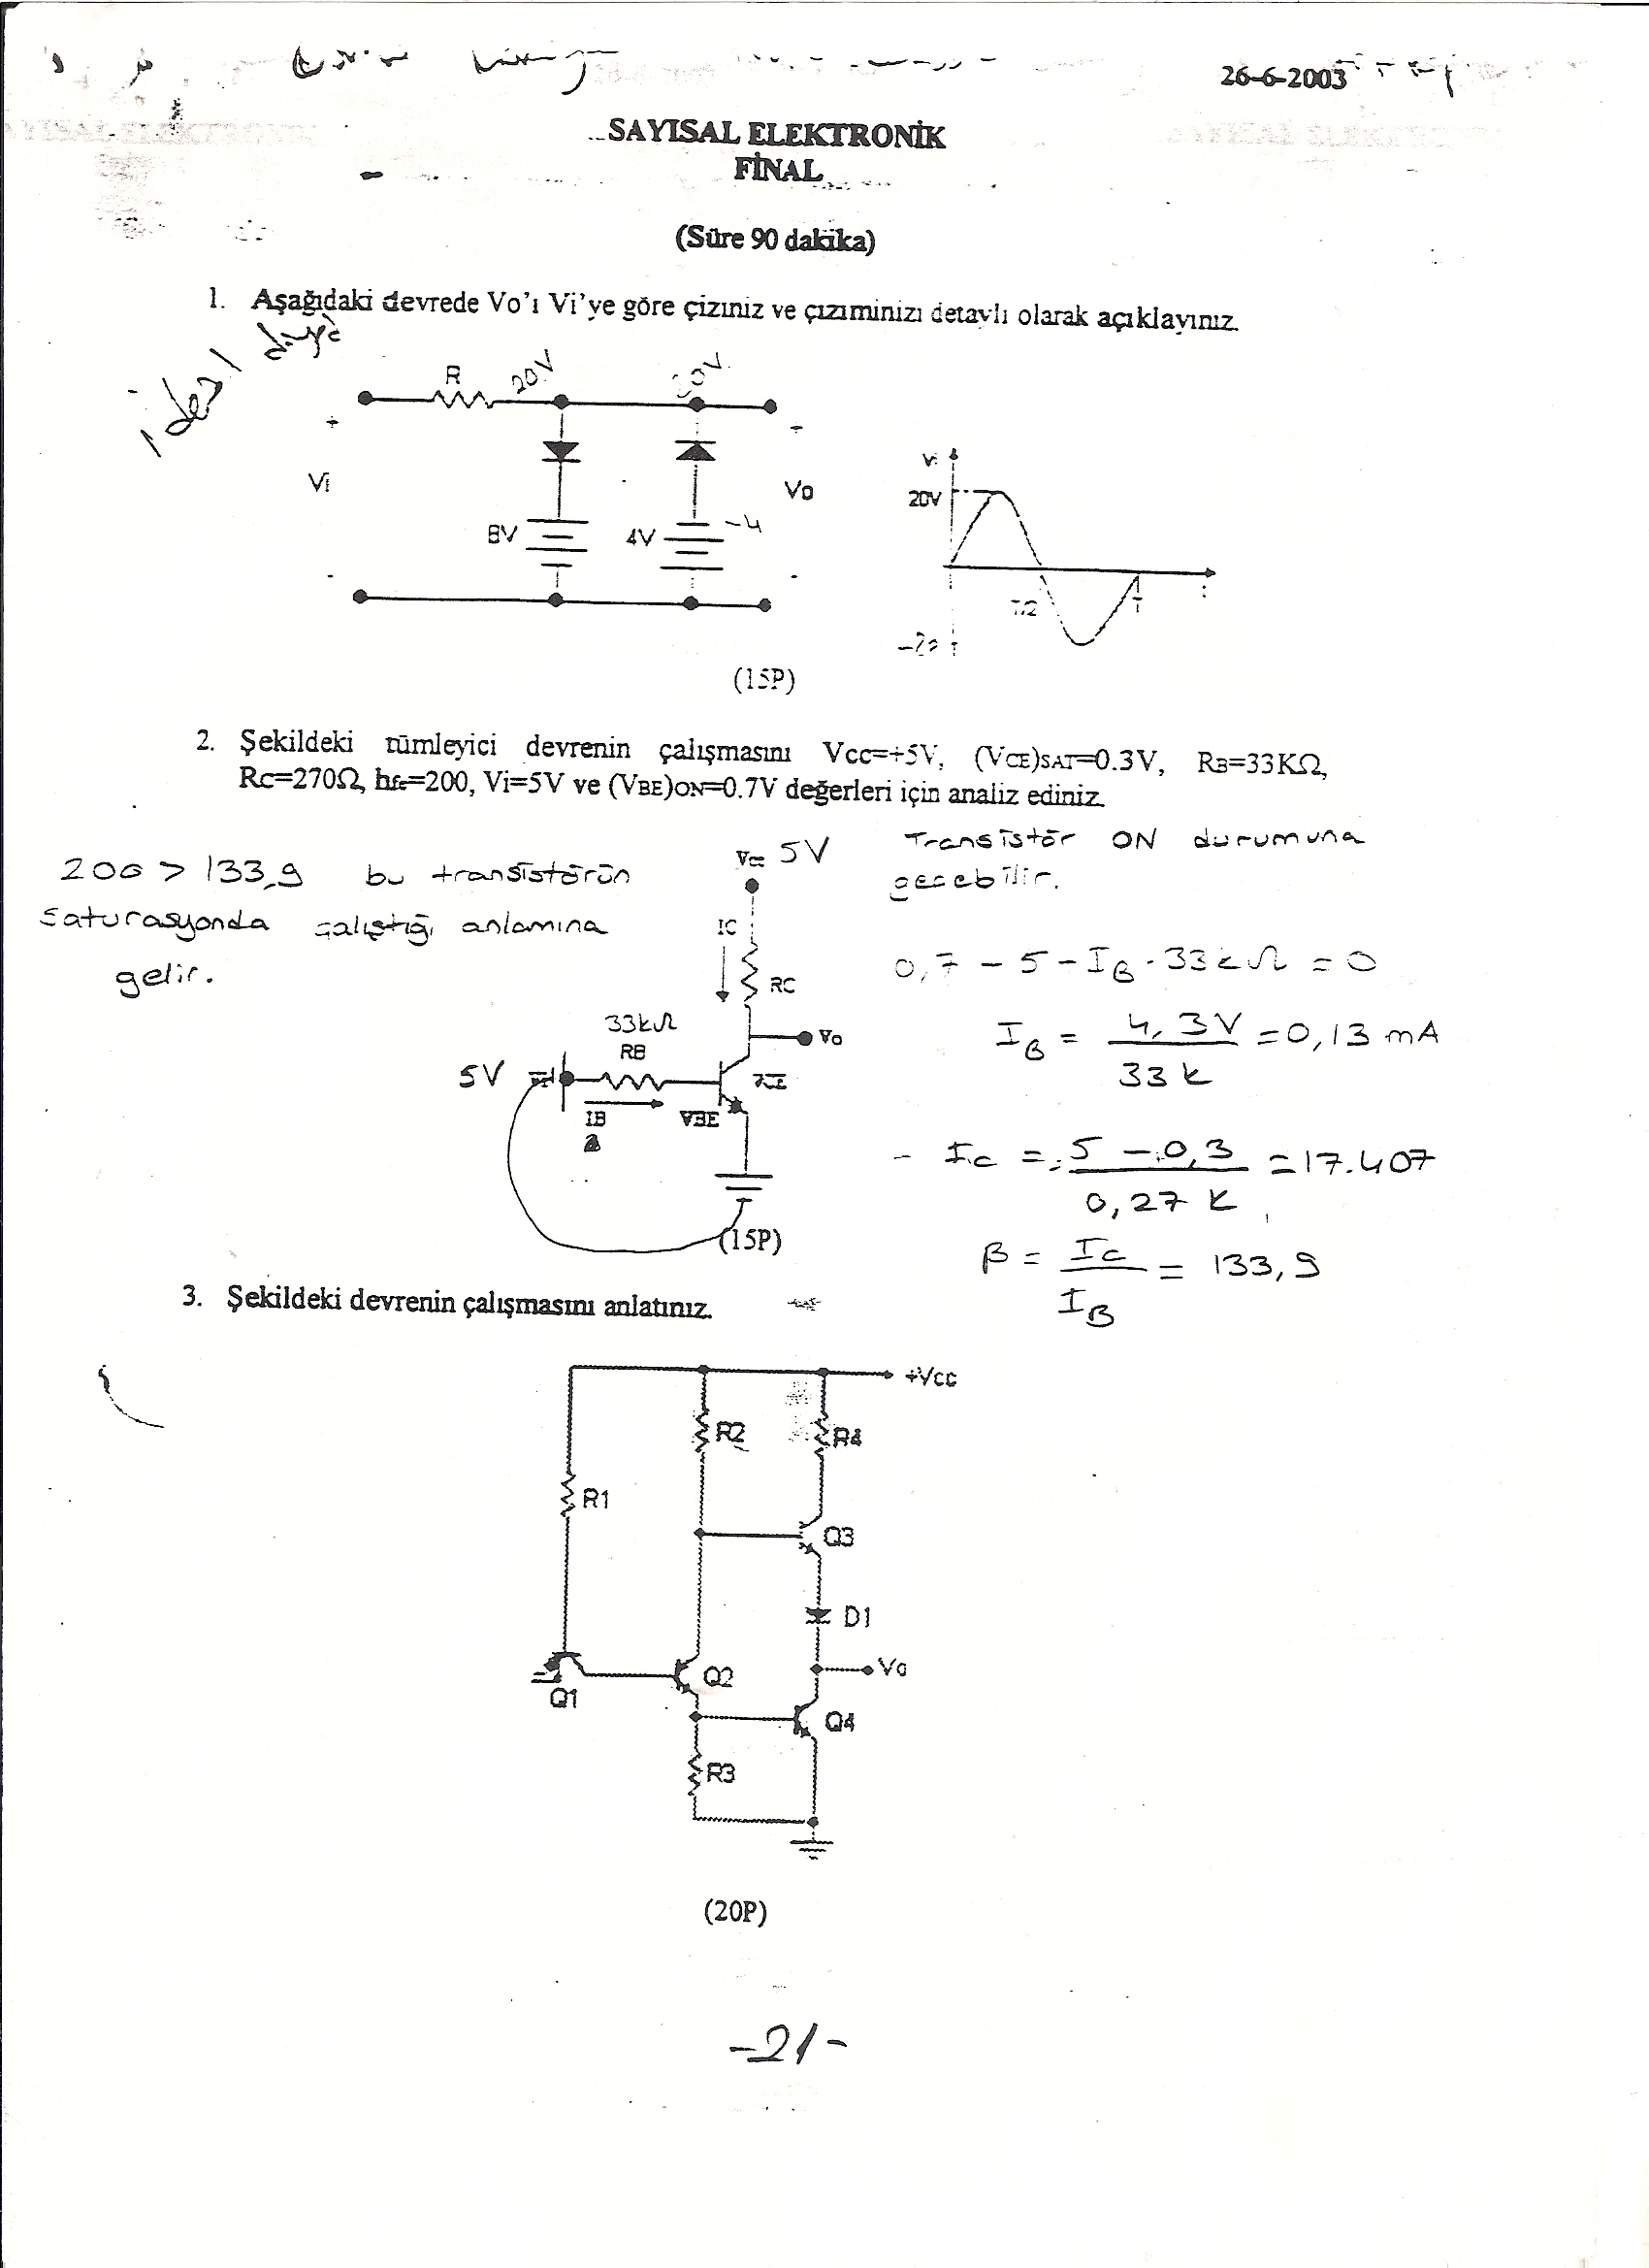 26-6-2003
SAYISAL ELEKTRONİK
FİNAL
(Süre 90 dakika)
1. Aşağıdaki devrede Vo'ı Vi'ye göre çiziniz ve çiziminizi detaylı olarak açıklayınız.
ideal
R
20V
+
Vi
Vo
8V
4V
-4
-
Vi
20V
T/2
T
(15P)
2. Şekildeki tümleyici devrenin çalışmasını Vcc=+5V, (VCE)SAT=0.3V, RB=33KΩ,
RC=270Ω, hfe=200, Vi=5V ve (VBE)ON=0.7V değerleri için analiz ediniz.
200 > 133,9 bu transistörün
saturasyonda çalıştığı anlamına
gelir.
Vcc 5V
IC
RC
Vo
33kΩ
RB
5V
IB
VBE
(15P)
Transistör ON durumuna
geçebilir.
0,7 - 5 - IB . 33kΩ = 0
IB = 4,3V / 33k = 0,13 mA
- Ic = 5 - 0,3 / 0,27 k = 17.407
β = Ic / IB = 133,9
3. Şekildeki devrenin çalışmasını anlatınız.
+Vcc
R2
R4
R1
Q3
D1
Vo
Q2
Q1
Q4
R3
(20P)
-21-